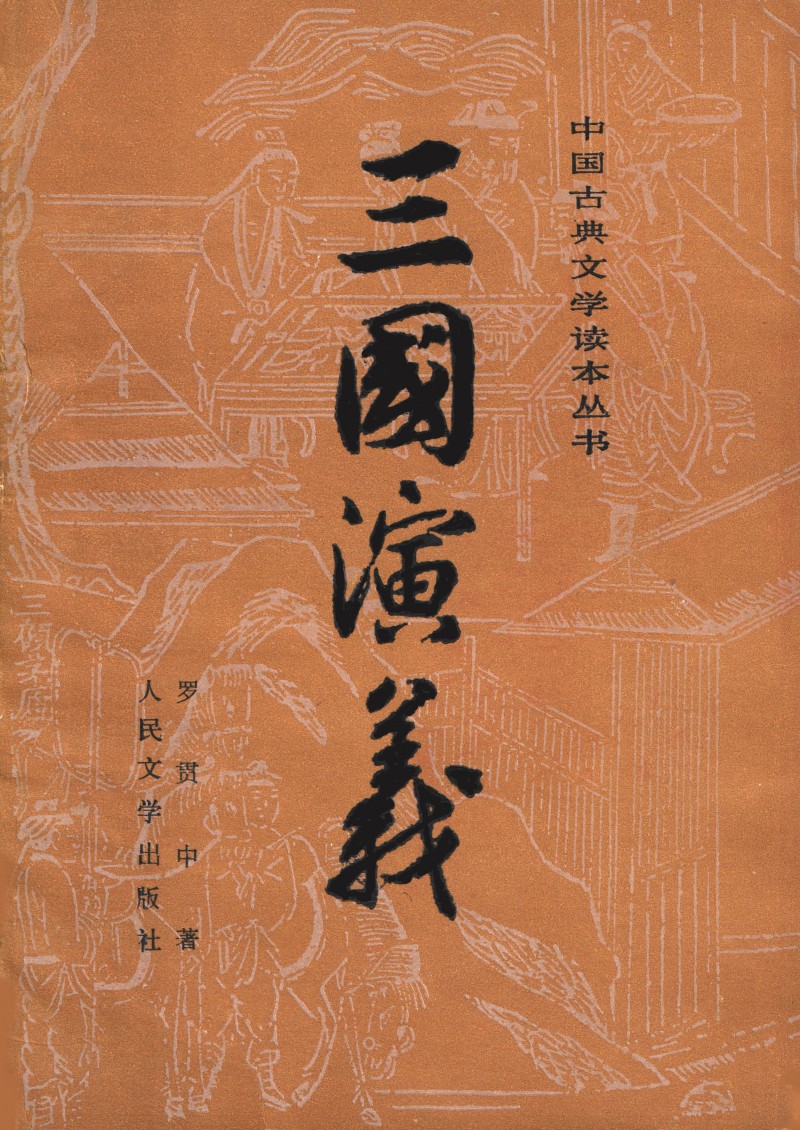 中国古典文学读本丛书
三國演義
罗贯中 著
人民文学出版社
三顾茅庐